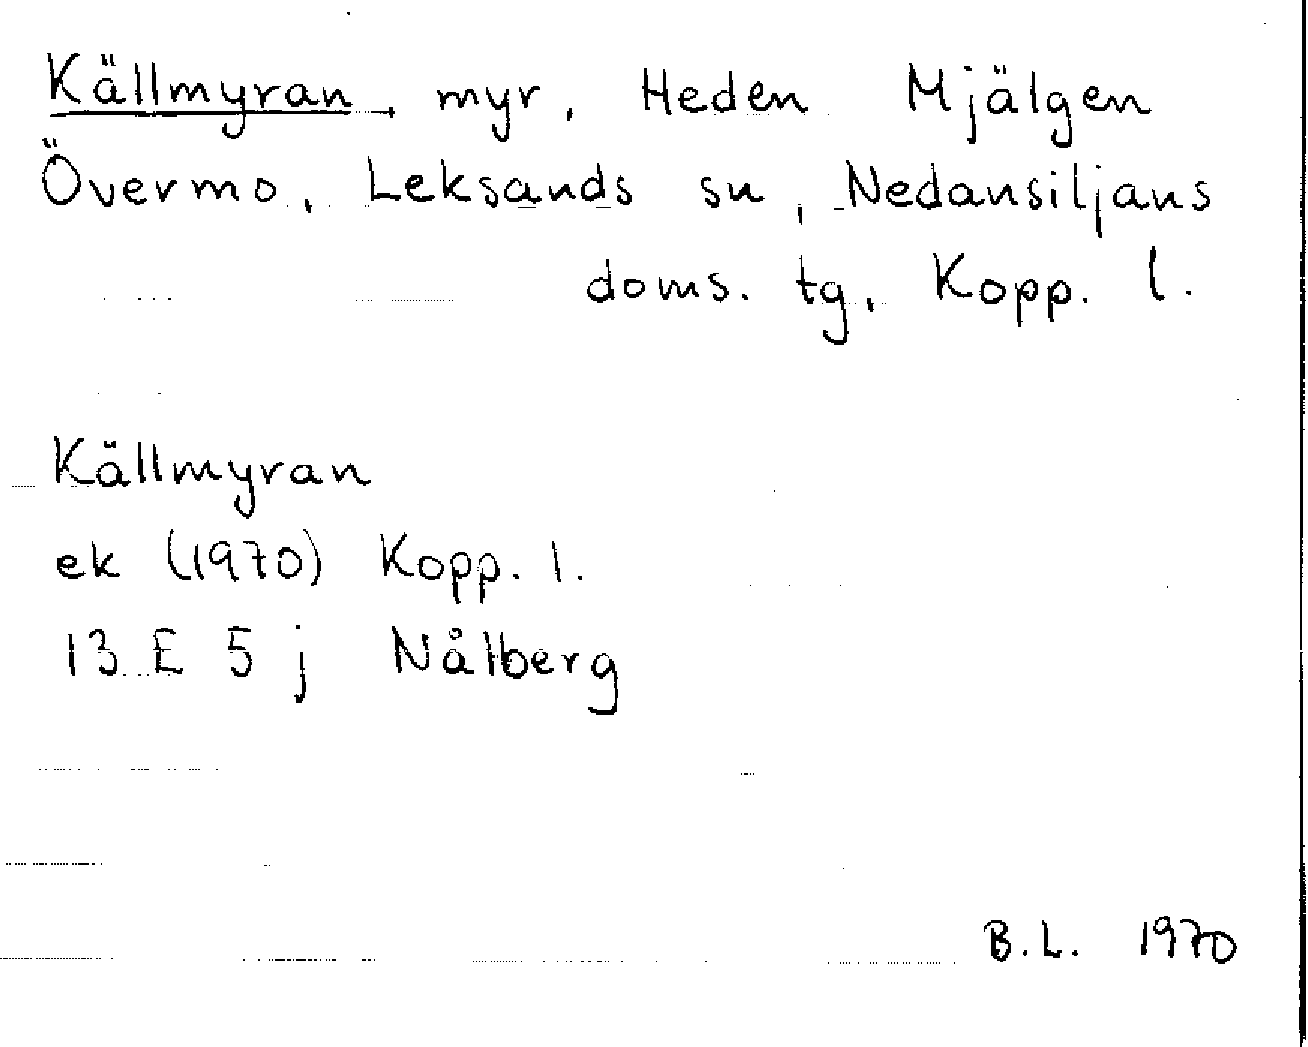 Källmyran, myr, Heden Mjälgen
Övermo, Leksands sn, Nedansiljans
doms. tg, Kopp. l.
Källmyran
ek (1970) Kopp. l.
13 E 5 j Nålberg
B.L. 1970